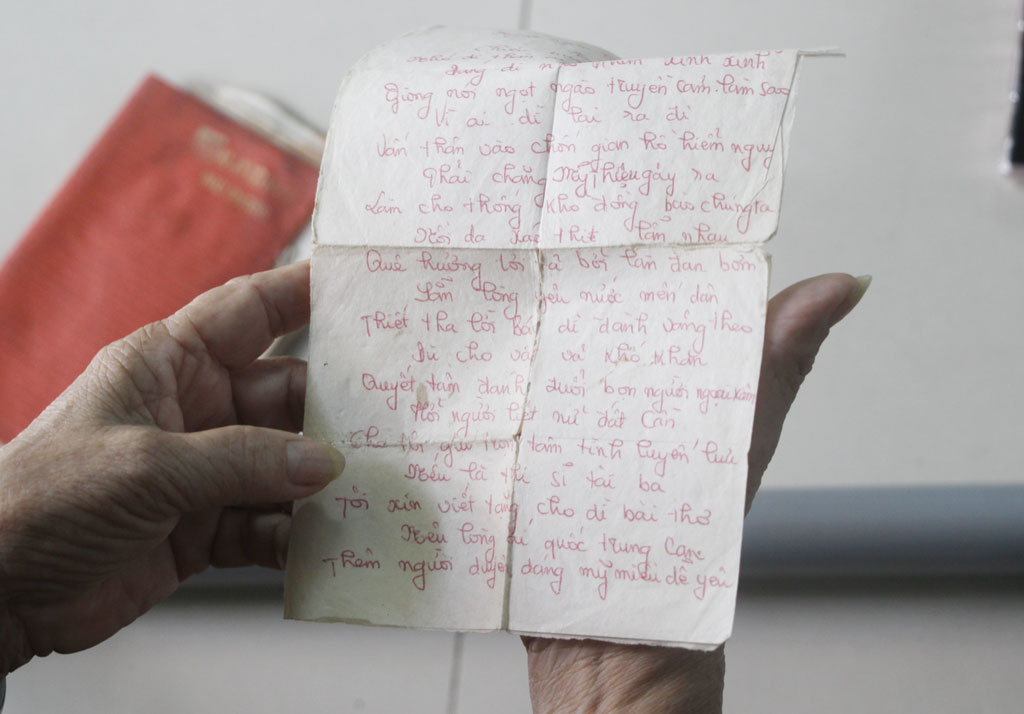 Giọng nói ngọt ngào truyền cảm làm sao
Vì ai dì lại ra đi
Vấn thân vào chốn gian hồ hiểm nguy
Phải chăng Mỹ Thiệu gây ra
Làm cho thống khổ đồng bao chúng ta
Nồi da thịt lẫn nhau
Quê hương bởi làn đạn bom
Sẵn lòng yêu nước mến dân
Thiết tha lời dì đành vâng theo
Dù cho vả khó khăn
Quyết tâm đánh đuổi bọn người ngoại xâm
Hỡi người nữ đất Cần
Cho tôi gửi trọn tâm tình luyến lưu
Nếu là thi sĩ tài ba
Tôi xin viết tặng cho dì bài thơ
Nêu lòng ái quốc trung Can
Thêm người duyên dáng mỹ miều dễ yêu